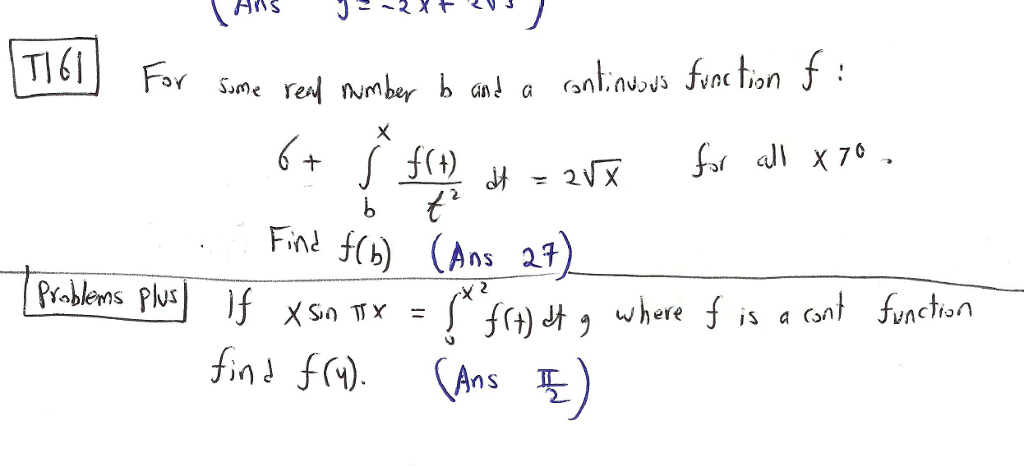 (Ans y = -2x + 2√3)
T161 For some real number b and a continuous function f :
6 + ∫_b^x f(t)/t² dt = 2√x for all x > 0.
Find f(b) (Ans 27)
Problems plus If x sin πx = ∫_0^{x²} f(t) dt, where f is a cont function
find f(4). (Ans π/2)